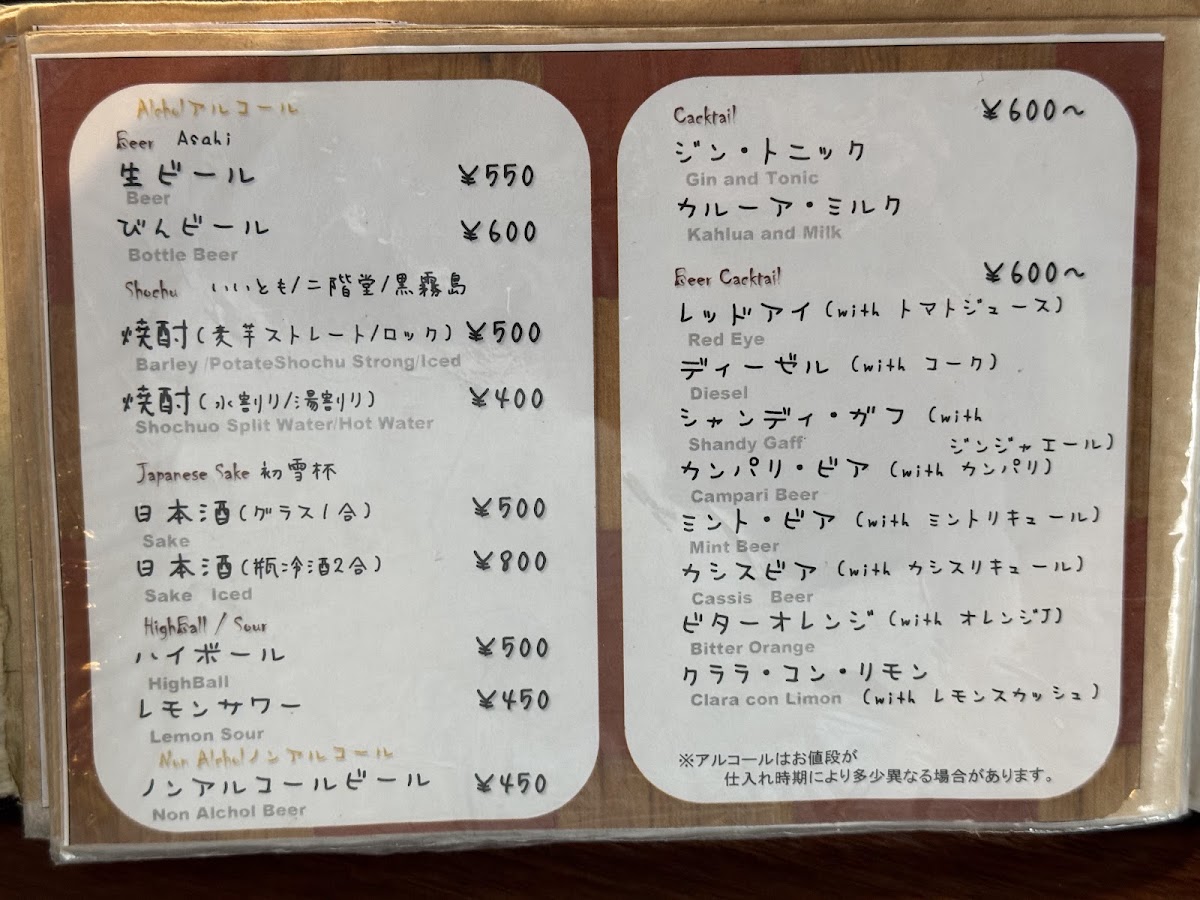 Alcholアルコール
Beer Asahi
生ビール ¥550
Beer
びんビール ¥600
Bottle Beer
Shochu いいとも/二階堂/黒霧島
焼酎(麦芋ストレート/ロック) ¥500
Barley /PotateShochu Strong/Iced
焼酎(水割り/湯割り) ¥400
Shochuo Split Water/Hot Water
Japanese Sake 初雪杯
日本酒(グラス1合) ¥500
Sake
日本酒(瓶冷酒2合) ¥800
Sake Iced
HighBall / Sour
ハイボール ¥500
HighBall
レモンサワー ¥450
Lemon Sour
Non Alcholノンアルコール
ノンアルコールビール ¥450
Non Alchol Beer
Cacktail ¥600~
ジン・トニック
Gin and Tonic
カルーア・ミルク
Kahlua and Milk
Beer Cacktail ¥600~
レッドアイ (with トマトジュース)
Red Eye
ディーゼル (with コーク)
Diesel
シャンディ・ガフ (with
Shandy Gaff ジンジャエール)
カンパリ・ビア (with カンパリ)
Campari Beer
ミント・ビア (with ミントリキュール)
Mint Beer
カシスビア (with カシスリキュール)
Cassis Beer
ビターオレンジ (with オレンジJ)
Bitter Orange
クララ・コン・リモン
Clara con Limon (with レモンスカッシュ)
※アルコールはお値段が
仕入れ時期により多少異なる場合があります。